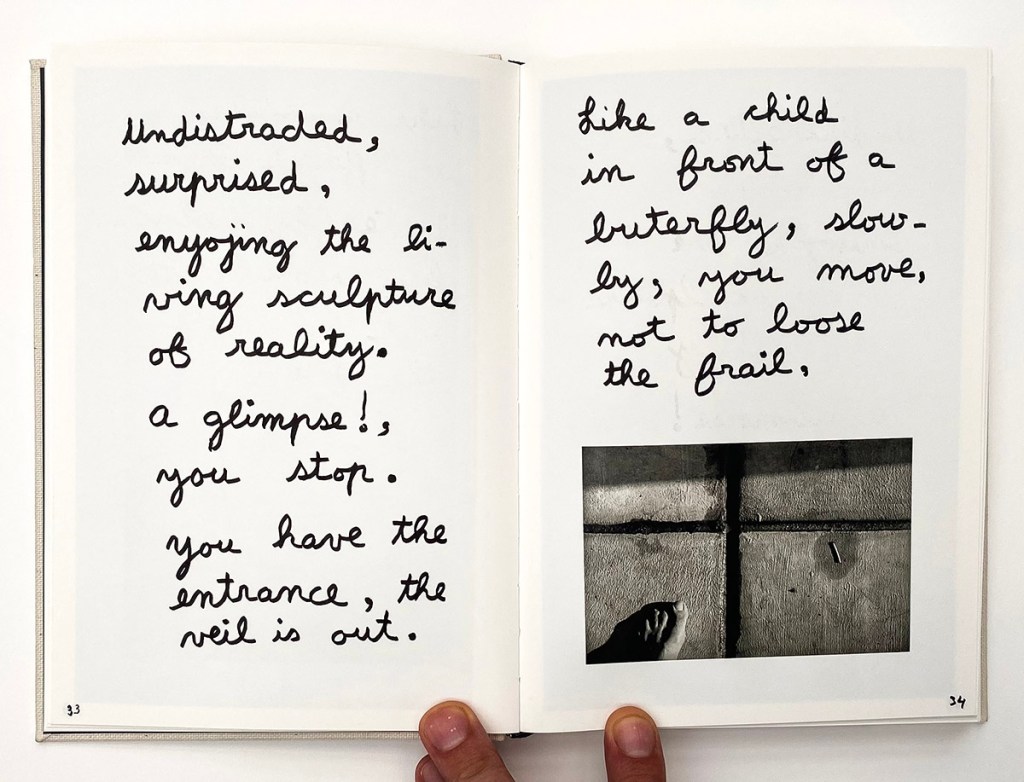 undistracted,
surprised,
enyojing the li-
ving sculpture
of reality.
a glimpse!,
you stop.
you have the
entrance, the
veil is out.
33
Like a child
in front of a
buterfly, slow-
ly, you move,
not to loose
the frail,
34